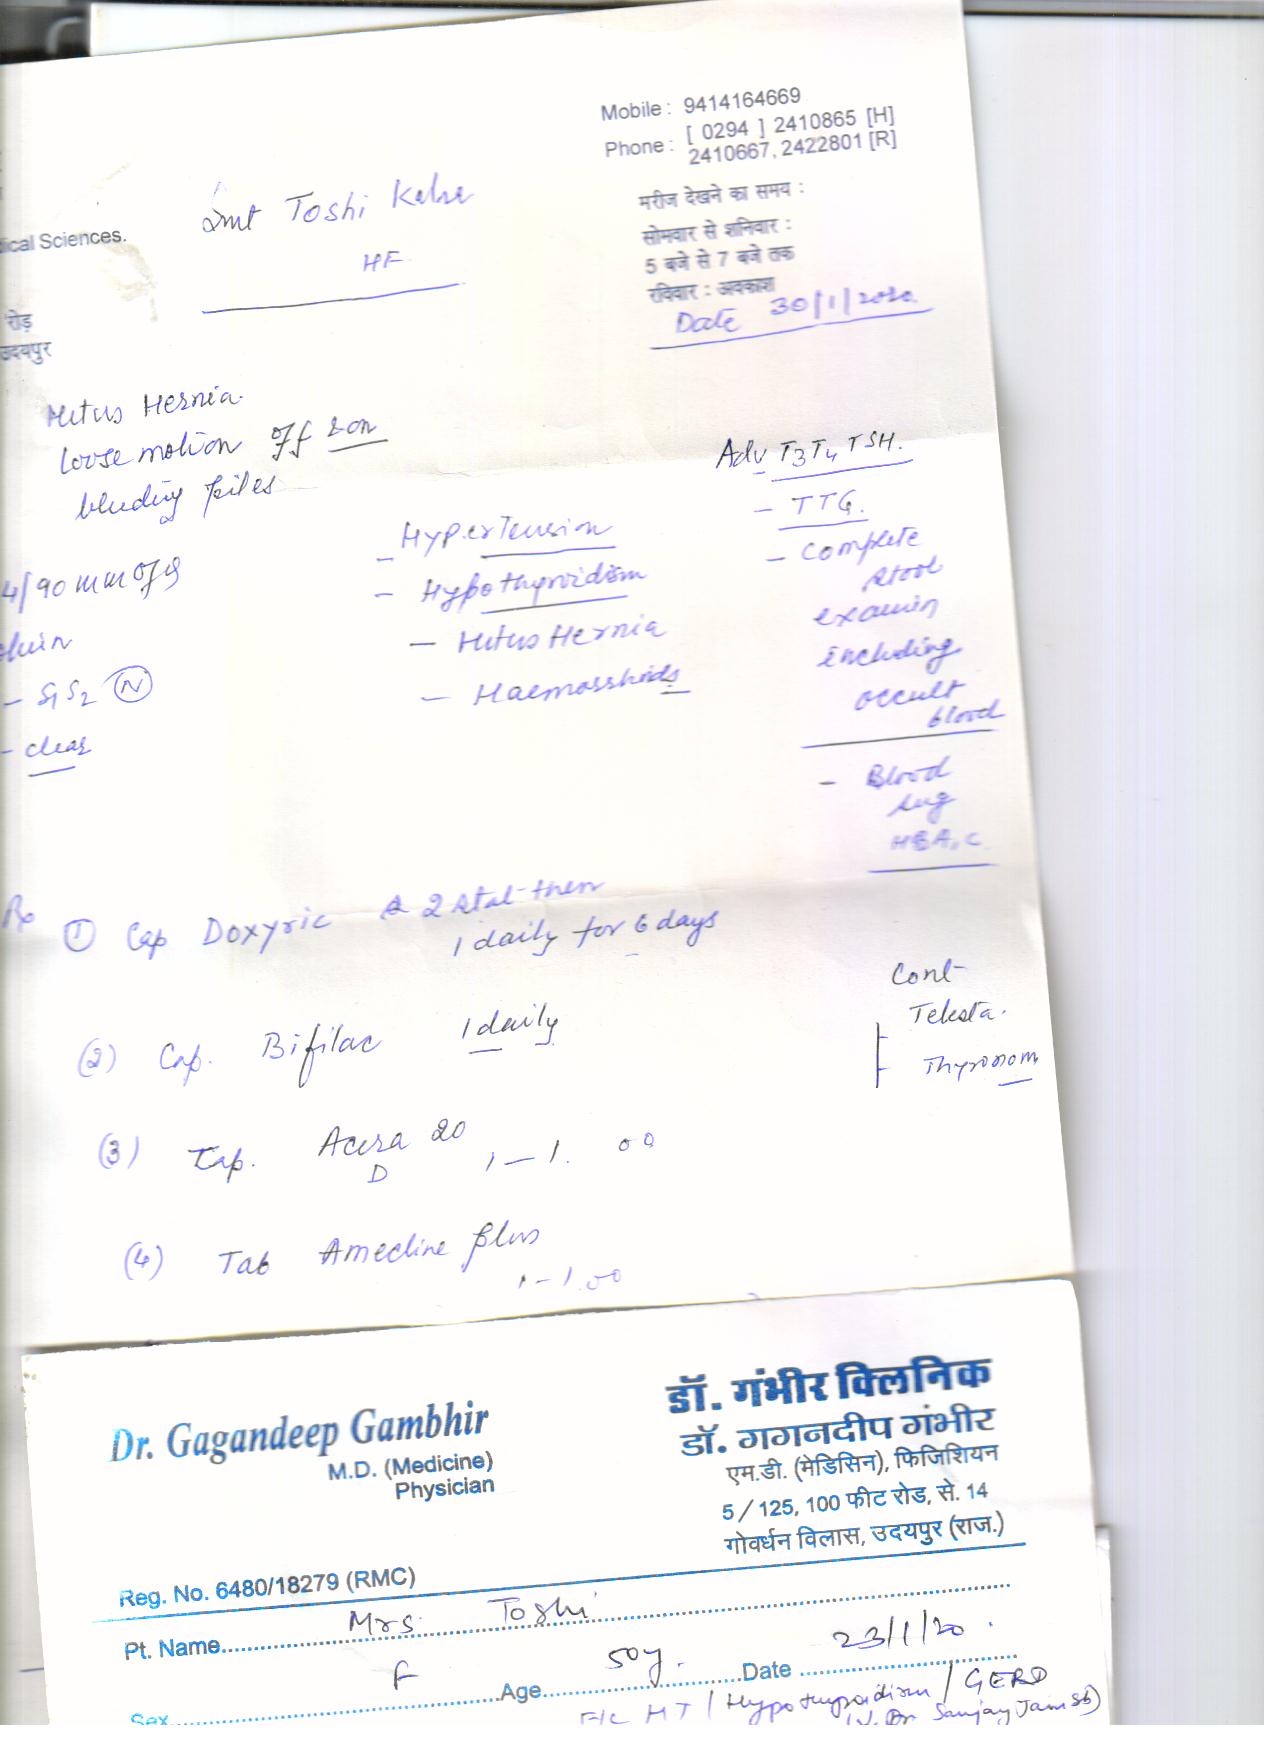 Mobile : 9414164669
Phone : [ 0294 ] 2410865 [H]
2410667, 2422801 [R]
मरीज देखने का समय :
सोमवार से शनिवार :
5 बजे से 7 बजे तक
रविवार : अवकाश
Date 30/1/2020.
Smt Toshi
HF
ical Sciences.
रोड़
उदयपुर
Hitus Hernia.
loose motion off & on
bleeding piles
4/90 mm of Hg
- S1 S2 (N)
- clear
- Hypertension
- Hypothyroidism
- Hitus Hernia
- Haemorrhoids
Adv T3 T4 TSH.
- TTG.
- Complete
stool
examin
including
occult
blood
- Blood
sug
HBA1C
Rx
① Cap Doxyric 2 stat then
1 daily for 6 days
(2) Cap. Bifilac 1 daily
(3) Cap. Acera 20
D 1 — 1. 00
(4) Tab Amecline plus
1 - 1. 00
Cont
Telsta.
Thyronom
Dr. Gagandeep Gambhir
M.D. (Medicine)
Physician
Reg. No. 6480/18279 (RMC)
डॉ. गंभीर क्लिनिक
डॉ. गगनदीप गंभीर
एम.डी. (मेडिसिन), फिजिशियन
5 / 125, 100 फीट रोड, से. 14
गोवर्धन विलास, उदयपुर (राज.)
Pt. Name Mrs. Toshi
Sex F Age 50y. Date 23/1/20.
F/C HT / Hypothyroidism / GERD
Dr Sanjay Jain Sb)